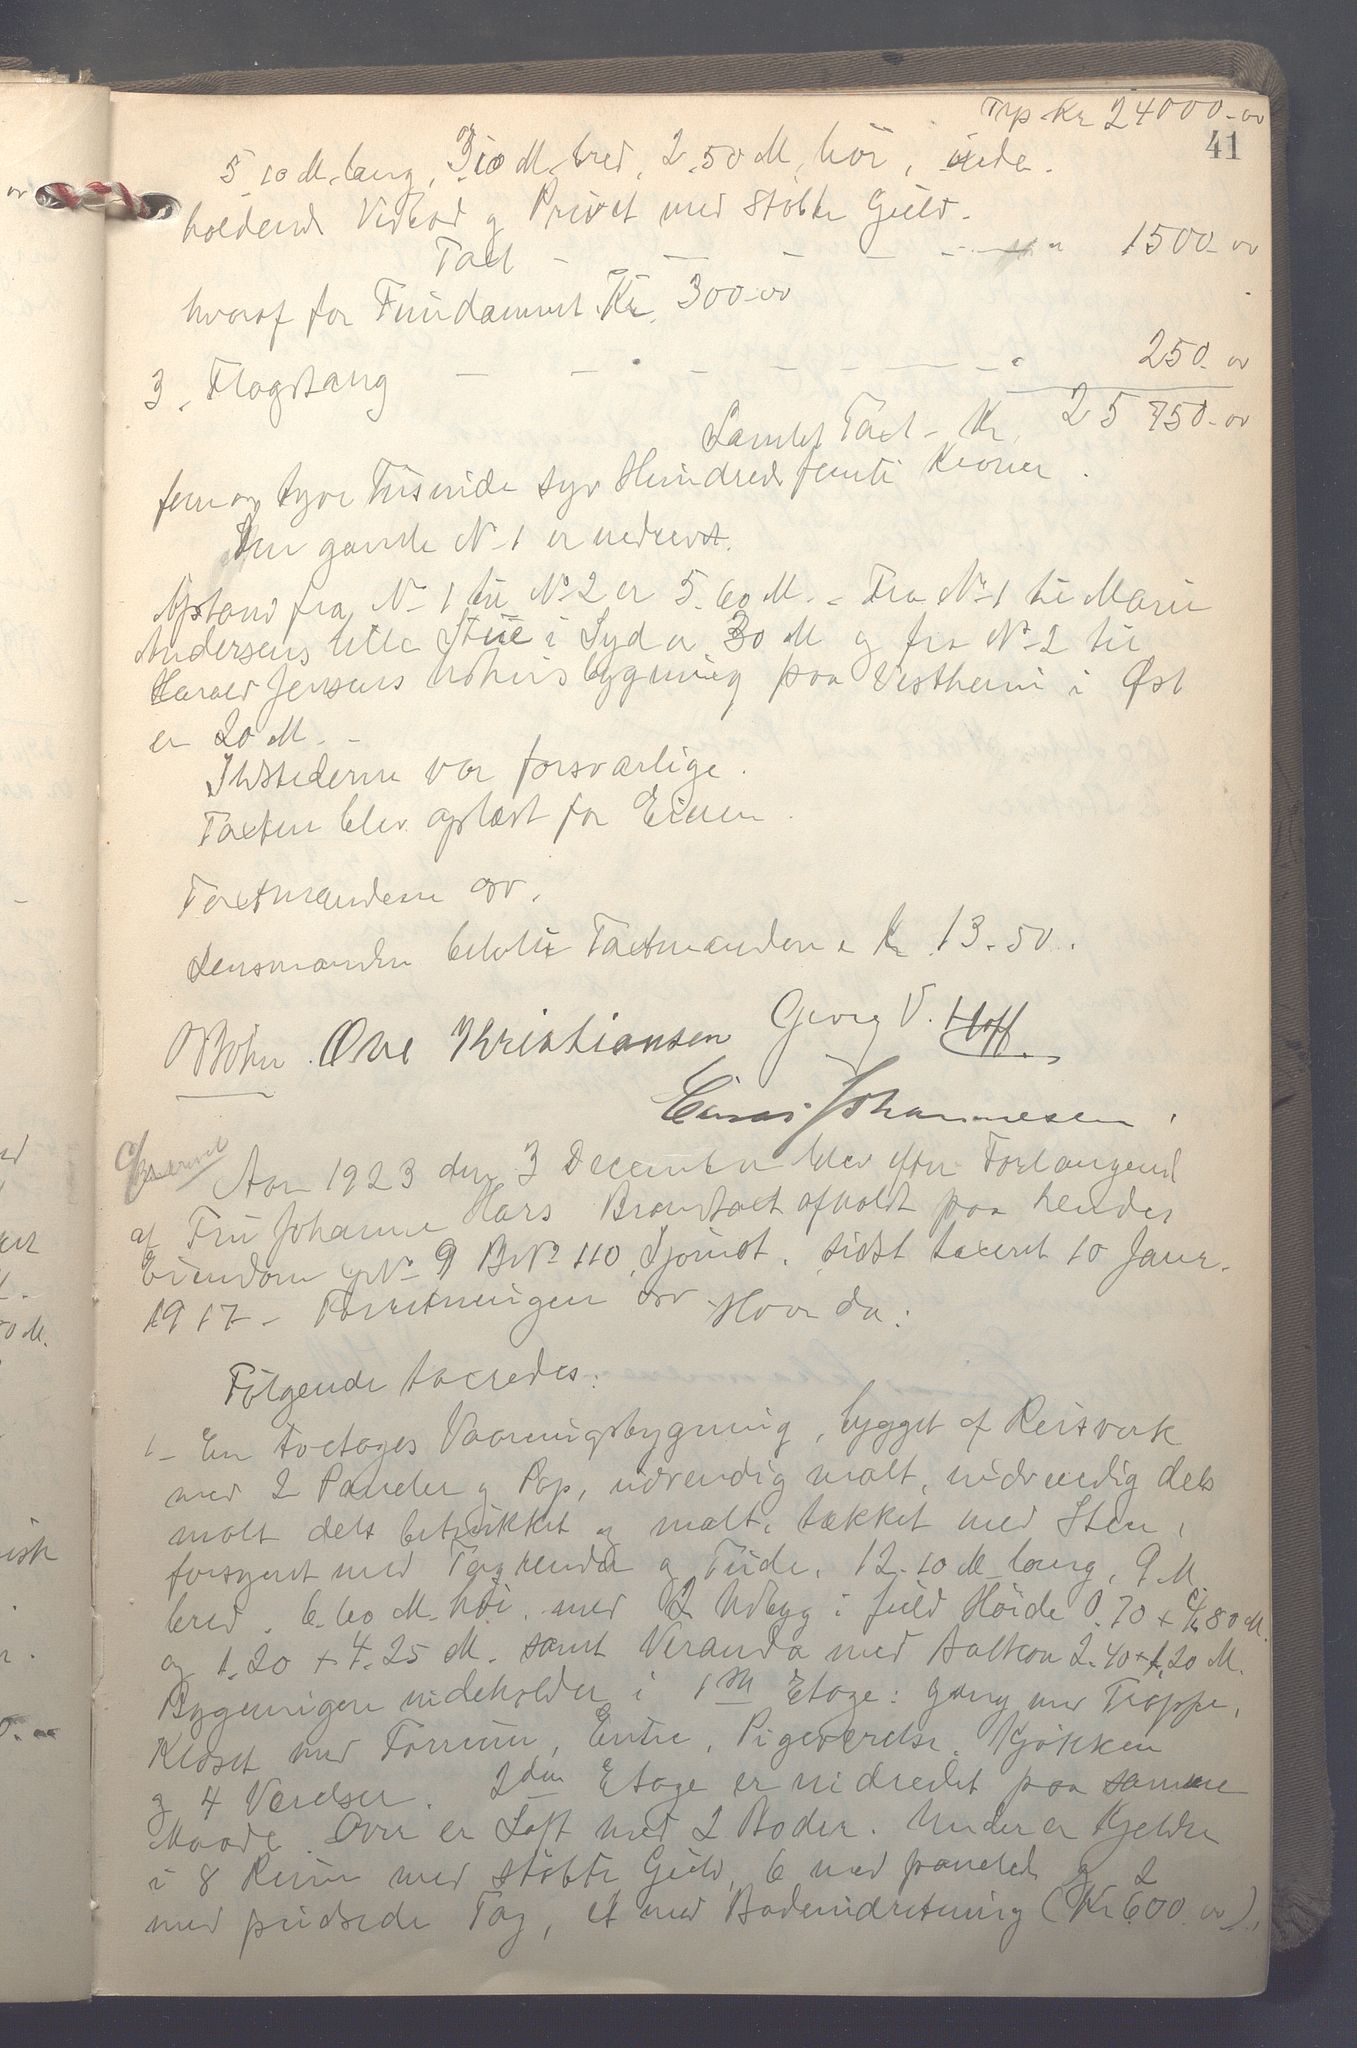 Trp Kr 24000-00
41
5.10 M. lang, 3.10 M. bred, 2.50 M. høi, inde-
holdende Vedbod og Privet med støbte Gulv.
Taxt - - - - - " 1500-00
hvoraf for Fundament Kr. 300-00
3. Flagstang - - - - - - - 250-00
Samlet Taxt - Kr. 25750-00
fem og tyve Tusinde syv Hundrede femti Kroner.
Den gamle No 1 er nedrevet.
Afstand fra No 1 til No 2 er 5.60 M. - Fra No 1 til Marie
Andersens lille Stue i Syd er 30 M og fra No 2 til
Harald Jensens Udhusbygning paa Vestheim i Øst
er 20 M. -
Ildstederne var forsvarlige.
Taxten blev oplæst for Eieren.
Taxtmændene osv.
Lensmanden betalte Taxtmændene Kr. 13.50.
Bohn. Ove Kristiansen Georg V. Hoff.
Einar Johannesen.
Aar 1923 den 3 December blev efter Forlangende
af Fru Johanne Hars Brandtaxt afholdt paa hendes
Eiendom GNo 9 BNo 110, sidst taxeret 10 Janr.
1917 - Forretningen osv Hvor da:
Følgende taxeredes:
1 - En toetages Vaaningsbygning, bygget af Reisverk
med 2 Paneler og Pap, udvendig malt, indvendig dels
malt dels betrukket og malt, tækket med Sten,
forsynet med Tagrender og Nedløb. 12.10 M. lang, 9 M
bred, 6.60 M. høi, med 2 Udbyg i fuld Høide 0.70 + 4.80 M.
og 1.20 + 4.25 M. samt Veranda med Balkon 2.40 + 1.20 M.
Bygningen indeholder i 1ste Etage: gang med Trappe,
Kloset med Forrum, Entre, Pigeværelse, Kjøkken
og 4 Værelser. 2den Etage er indredet paa samme
Maade. Over er Loft med 2 Boder. Under er Kjelder
i 8 Rum med støbte Gulv, 6 med panelet og 2
med pudsede Tag, et med Badeindretning (Kr 600.00),